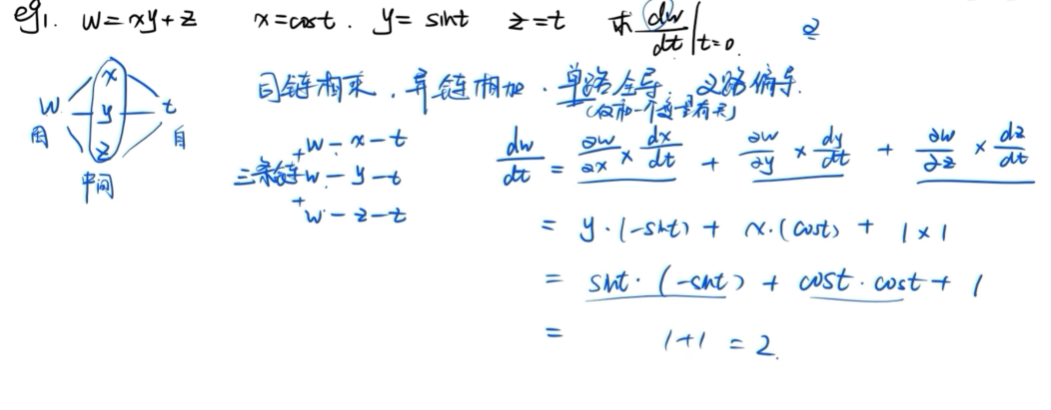 eg1. w=xy+z x=cost. y=sint z=t 求 dw/dt|t=0. 2
同链相乘, 异链相加. 单路全导, 叉路偏导.
(仅和一个变量有关)
w x y z t
因 自
中间
三条链
w-x-t
+ w-y-t
+ w-z-t
dw/dt = ∂w/∂x × dx/dt + ∂w/∂y × dy/dt + ∂w/∂z × dz/dt
= y·(-sint) + x·(cost) + 1×1
= sint·(-sint) + cost·cost + 1
= 1+1 = 2.